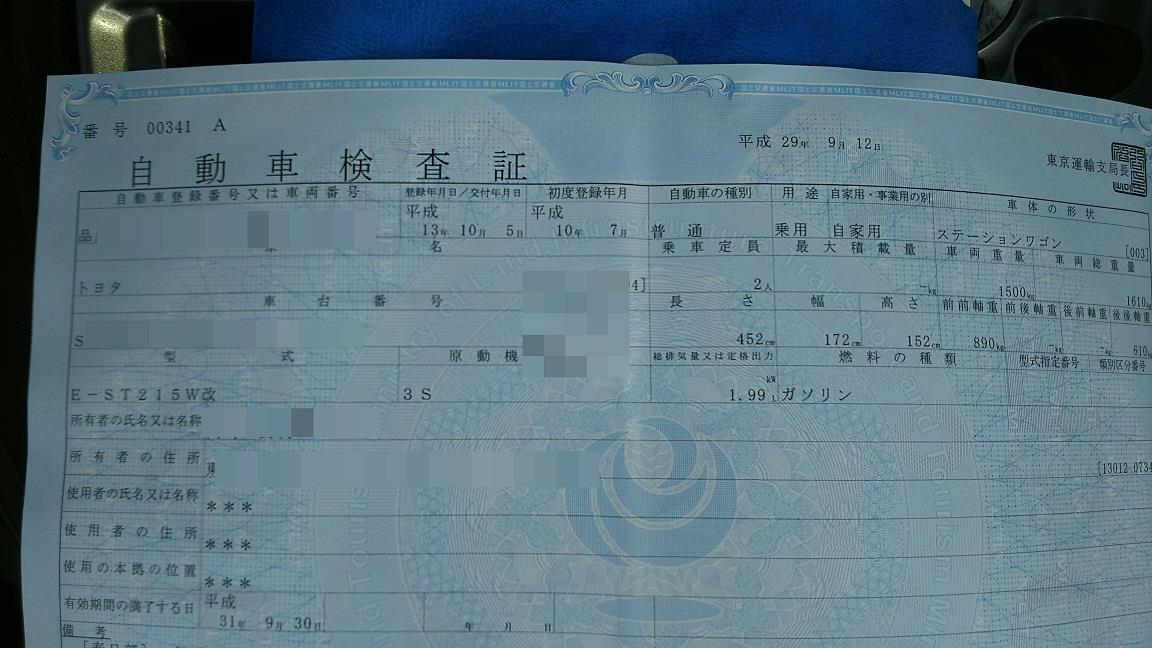 国土交通省MLIT国土交通省MLIT国土交通省MLIT
番号 00341 A
平成 29年 9月 12日
自動車検査証
東京運輸支局長
自動車登録番号又は車両番号 登録年月日/交付年月日 初度登録年月 自動車の種別 用途 自家用・事業用の別 車体の形状
品 平成 13年 10月 5日 平成 10年 7月 普通 乗用 自家用 ステーションワゴン [003]
車名 乗車定員 最大積載量 車両重量 車両総重量
トヨタ 4] 2人 -kg 1500kg 1610kg
車台番号 長さ 幅 高さ 前前軸重 前後軸重 後前軸重 後後軸重
S 452cm 172cm 152cm 890kg -kg -kg 610
型式 原動機 総排気量又は定格出力 燃料の種類 型式指定番号 類別区分番号
E-ST215W改 3S 1.99 kW L ガソリン
所有者の氏名又は名称
所有者の住所 [13012 0734
使用者の氏名又は名称 ***
使用者の住所 ***
使用の本拠の位置 ***
有効期間の満了する日 平成 31年 9月 30日 年 月 日
備考